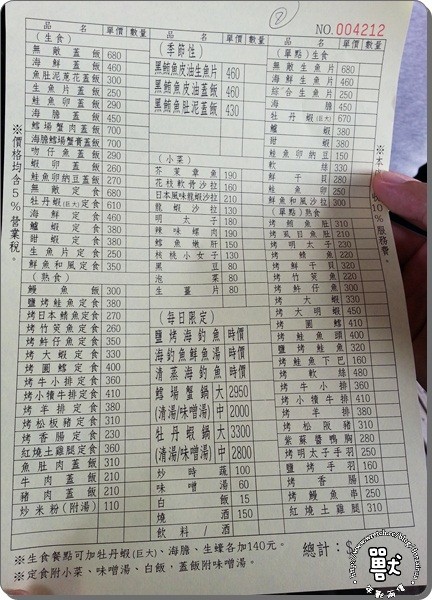 NO. 004212
品 名 單價 數量
(生食)
無敵蓋飯 680
海鮮蓋飯 460
魚肚泥蔥花蓋飯 310
生魚片蓋飯 250
鮭魚卵蓋飯 290
海膽蓋飯 450
鱈場蟹肉蓋飯 700
海膽鱈場蟹膏蓋飯 700
吻仔魚蓋飯 290
蝦卵蓋飯 260
鮭魚卵納豆蓋飯 270
無敵定食 680
牡丹蝦(巨大)定食 610
海鮮定食 460
鱸蝦定食 380
甜蝦定食 380
生魚片定食 250
鮮魚和風定食 350
(熟食)
鰻魚飯 300
鹽烤鮭魚定食 380
烤日本鯖魚定食 270
烤竹筴魚定食 260
烤鮮仔魚定食 350
烤大蝦定食 330
烤圓鱈定食 400
烤牛小排定食 360
烤小犢牛排定食 410
烤羊排定食 380
烤松板豬定食 310
烤香腸定食 230
紅燒土雞腿定食 360
魚肚肉蓋飯 310
牛肉蓋飯 210
豬肉蓋飯 210
炒米粉(附湯) 110
品 名 單價 數量
(季節性)
黑鮪魚皮油生魚片 460
黑鮪魚皮油蓋飯 460
黑鮪魚肚泥蓋飯 430
(小菜)
芥茉章魚 190
花枝軟骨沙拉 160
日本風味龍蝦沙拉 210
龍蝦沙拉 130
明太子 180
辣味螺肉 190
鱈魚嫩肝 150
核桃小女子 130
黑豆 80
泡菜 80
生薑片 80
(每日限定)
鹽烤海釣魚 時價
海釣魚鮮魚湯 時價
清蒸海釣魚 時價
鱈場蟹鍋 大 2950
(清湯/味噌湯) 中 2000
牡丹蝦鍋 大 3300
(清湯/味噌湯) 中 2800
炒時蔬 100
味噌湯 60
白飯 15
燒酒 150
飲料/酒
品 名 單價 數量
(單點)生食
無敵生魚片 680
海鮮生魚片 460
綜合生魚片 250
海膽 450
牡丹蝦(巨大) 670
鱸蝦 380
甜蝦 380
鮭魚卵納豆 150
軟絲 330
鮮干貝 280
鮭魚卵 250
鮮魚和風沙拉 300
(單點)熟食
烤鮪魚肚 310
烤虱目魚肚 210
烤明太子 230
烤鯖魚 220
烤鮮干貝 320
烤竹筴魚 220
烤鮮仔魚 300
烤大蝦 310
烤大明蝦 450
烤圓鱈 410
烤鮭魚頭 400
鹽烤鮭魚 320
烤鮭魚下巴 160
烤軟絲 480
烤牛小排 360
烤小犢牛排 410
烤羊排 380
烤松阪豬 310
紫蘇醬鴨胸 280
烤明太子手羽 250
鹽烤手羽 160
烤香腸 180
烤鰻魚串 250
紅燒土雞腿 310
※價格均含5%營業稅。
10%服務費。
※生食餐點可加牡丹蝦(巨大)、海膽、生蠔各加140元。
※定食附小菜、味噌湯、白飯，蓋飯附味噌湯。
總計：$
獸